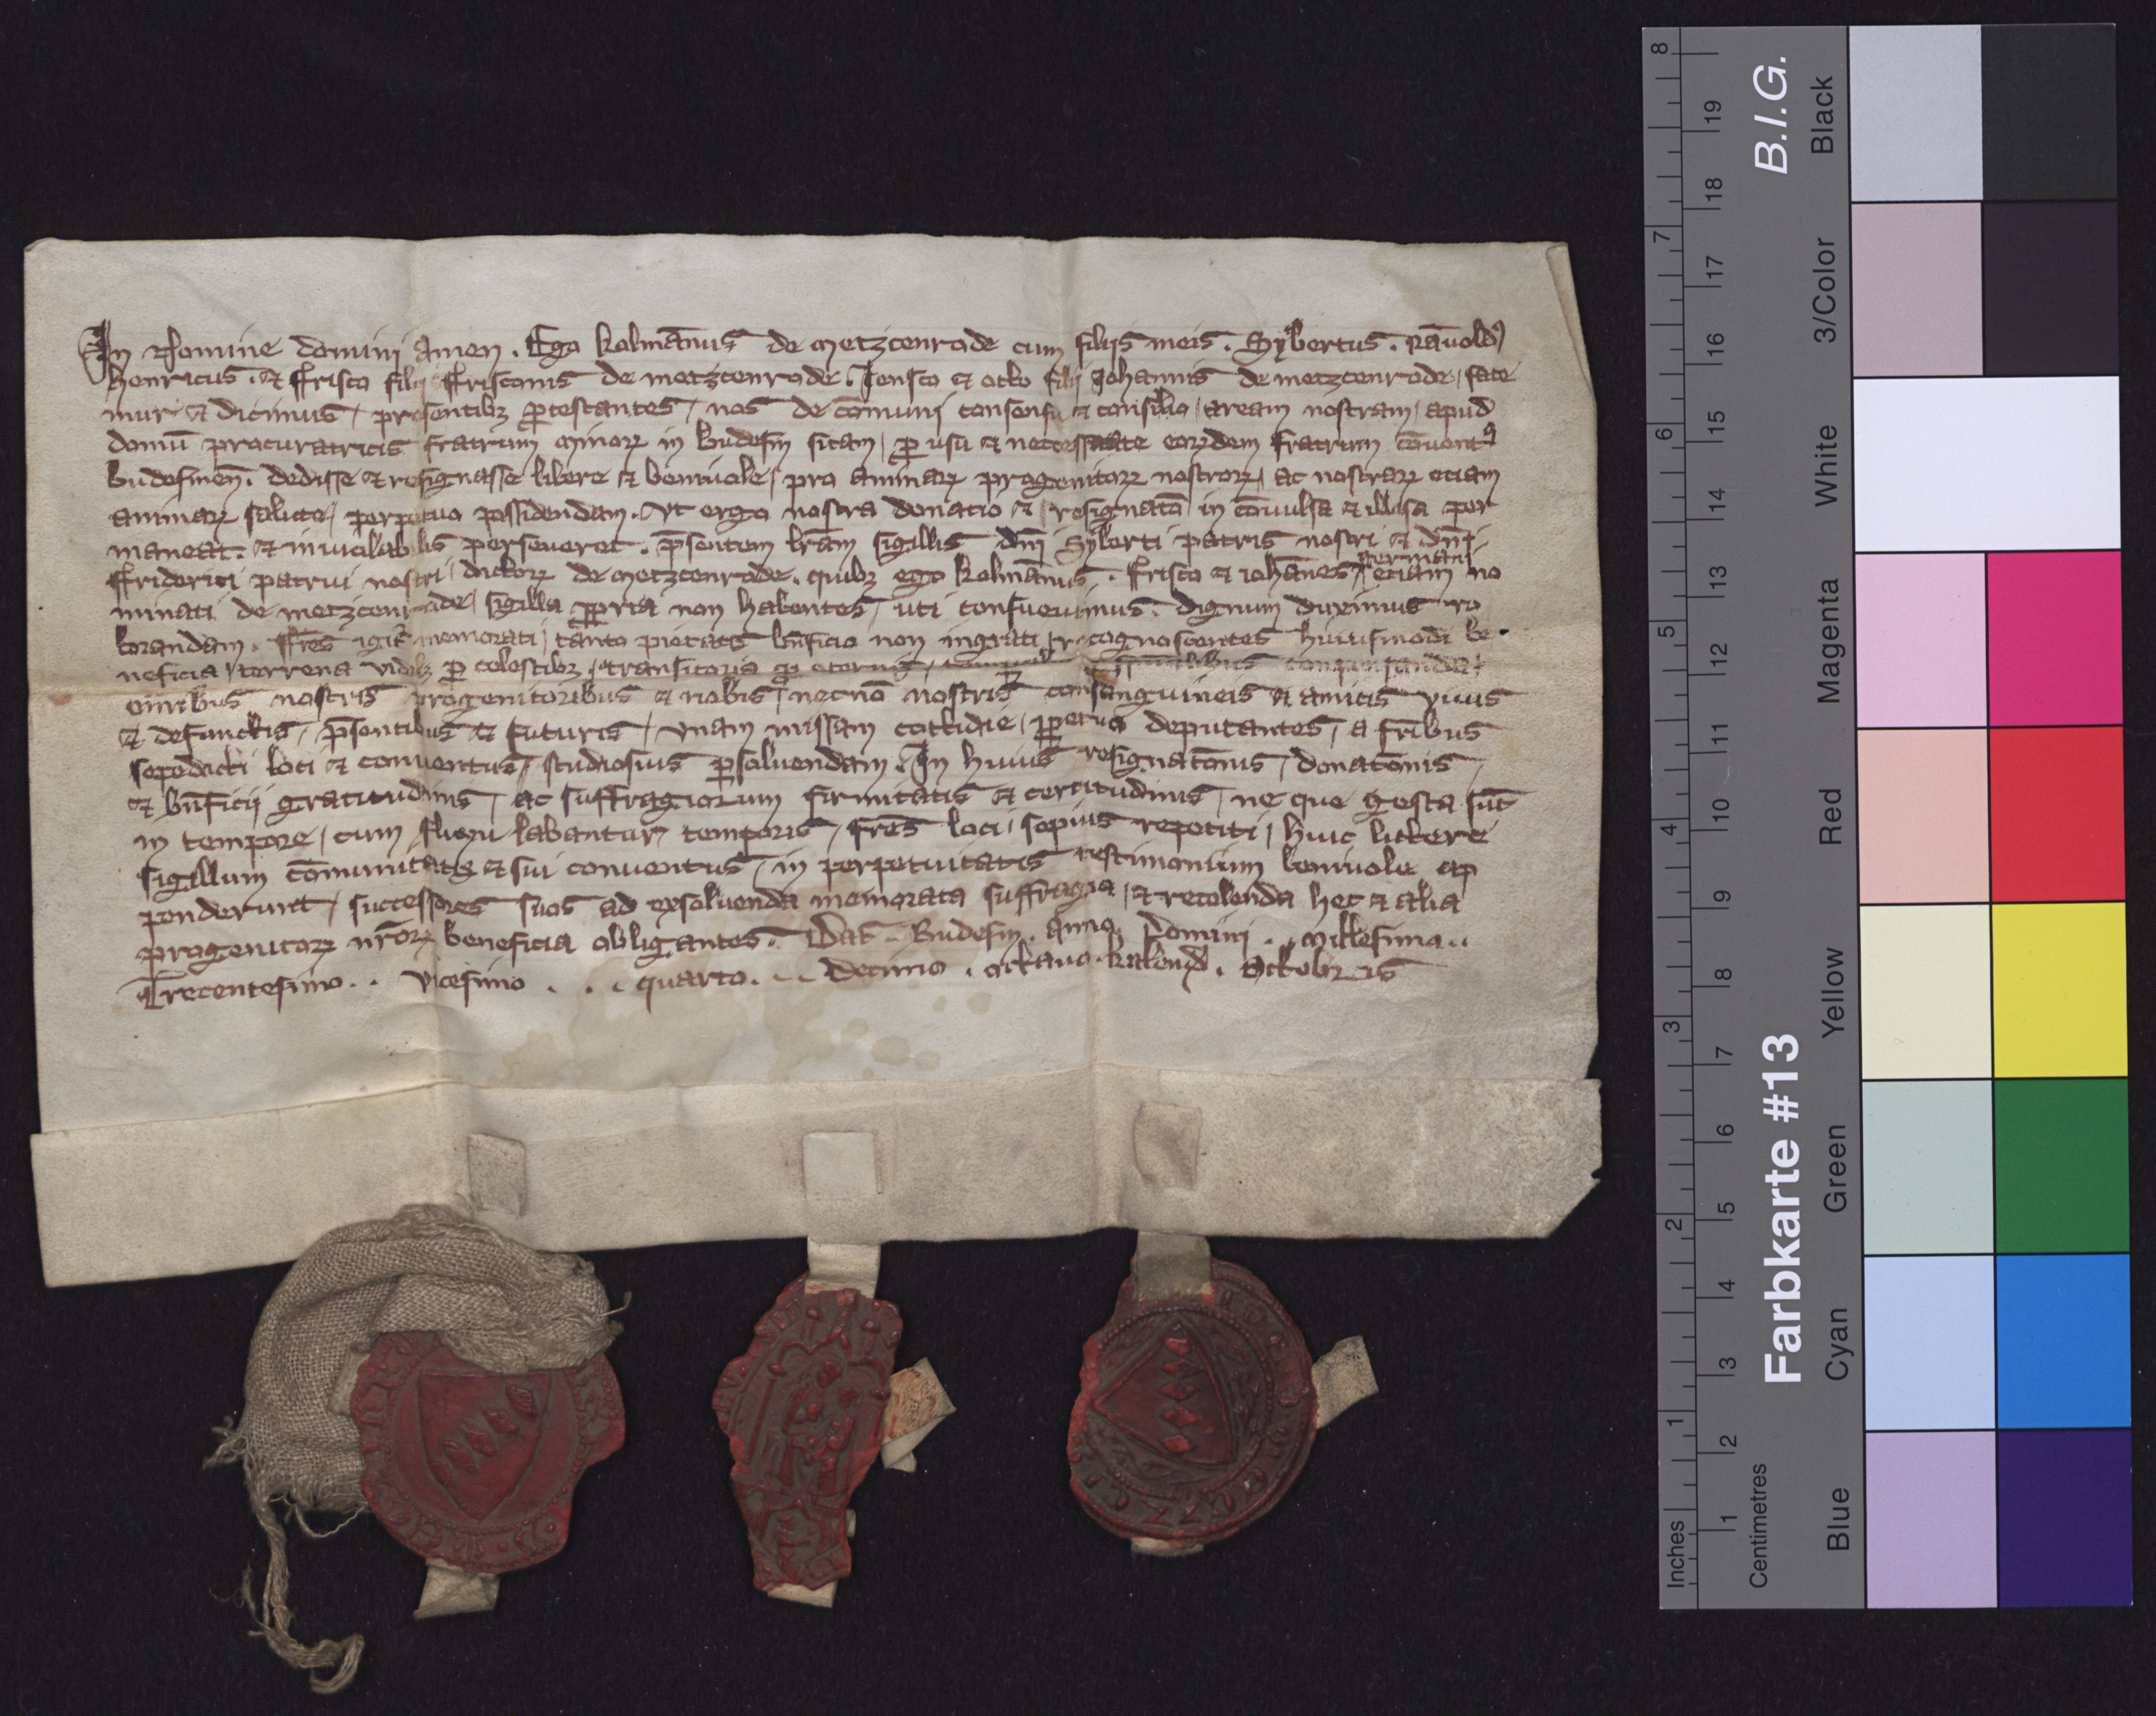 In Nomine domini Amen . Ego kolmānus de metzcenrode cum filijs meis . Sybertus . Rāuoldꝯ
henricus . et ffrisco filij ffrisconis de metzcenrode . Jensco et otko filij Johannis de metzcenrode / fate
mur et dicimus / presentibꝫ ꝓtestantes / nos de cōmuni consensu et consilio / aream nostram / apud
domū procuratricis fratrum minorꝝ in budesin sitam / ꝓ usu et necessitate eorꝝdem fratrum cōuentꝯ
budesineñ . dedisse et resignasse libere et beniuole / pro animarꝝ progenitorꝝ nostrorꝝ / ac nostrarꝝ etiam
animarꝝ salute / perpetuo possidendam . Vt ergo nostra donatio et resignatō in cōuulsa et illesa per
maneat . et inuiolabilis perseueret . p̄sentem lr̄am sigillis dn̄i Syberti patris nostri et dn̄i
ffriderici patrui nostri / dictorꝝ de metzcenrode . quibꝫ ego kolmānus . ffrisco et iohānes / germani etiam no
minati de metzcenrode / sigilla ꝓpria non habentes / uti consueuimus . dignum duximus ro
borandam . ffr̄es igit᷑ memorati / tanto pietatis bn̄ficio non ingrati / recognoscentes huiusmodi be
neficia / terrena videlꝫ ꝓ celestibꝫ / transitoria ꝓ eternis / compensanda /
om̄ibus nostris progenitoribus et nobis / necnō nostris consanguineis et amicis viuis
et defunctis / p̄sentibus et futuris / vnam missam cottidie / ꝑpetuo deputantes / a fr̄ibus
sepedicti loci et conuentus / studiosius ꝑsoluendam . In huius resignatōnis / donatōnis /
et bn̄ficij gratitudinis / ac suffragiorum firmitatis et certitudinis / ne que gesta sūt
in tempore / cum fluxu labantur temporis / fr̄es loci / sepius repetiti / huic littere
sigillum cōmunitatis et sui conuentus / in perpetuitatis testimonium beniuole ap
penderunt / successores suos ad exsoluenda memorata suffragia / et recolenda hec et alia
progenitorꝝ nr̄orꝝ beneficia obligantes . Dat̄ . Budesin . Anno . Domini . millesimo ..
Trecentesimo . . vicesimo . . . quarto . . . decimo . octauo . kalend . Octobris
Inches
Centimetres
1 2 3 4 5 6 7 8
1 2 3 4 5 6 7 8 9 10 11 12 13 14 15 16 17 18 19
Farbkarte #13
B.I.G.
Blue
Cyan
Green
Yellow
Red
Magenta
White
3/Color
Black